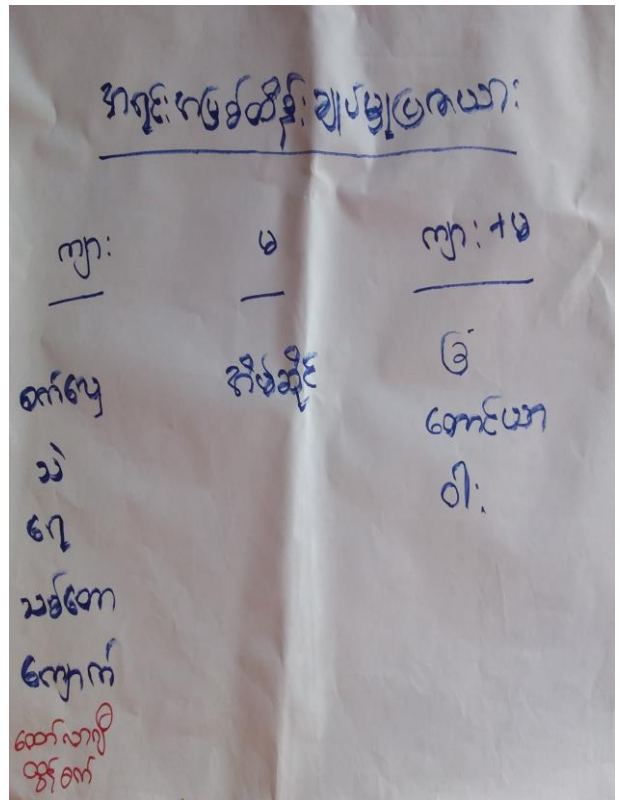 အရင်းအမြစ်ထိန်းချုပ်မှုပြဇယား
ကျား မ ကျား + မ
စက်လှေ အိမ်ဆိုင် ခြံ
သဲ တောင်ယာ
ရွှေ ဝါး
သစ်တော
ကျောက်
ထော်လာဂျီ
ထွန်စက်